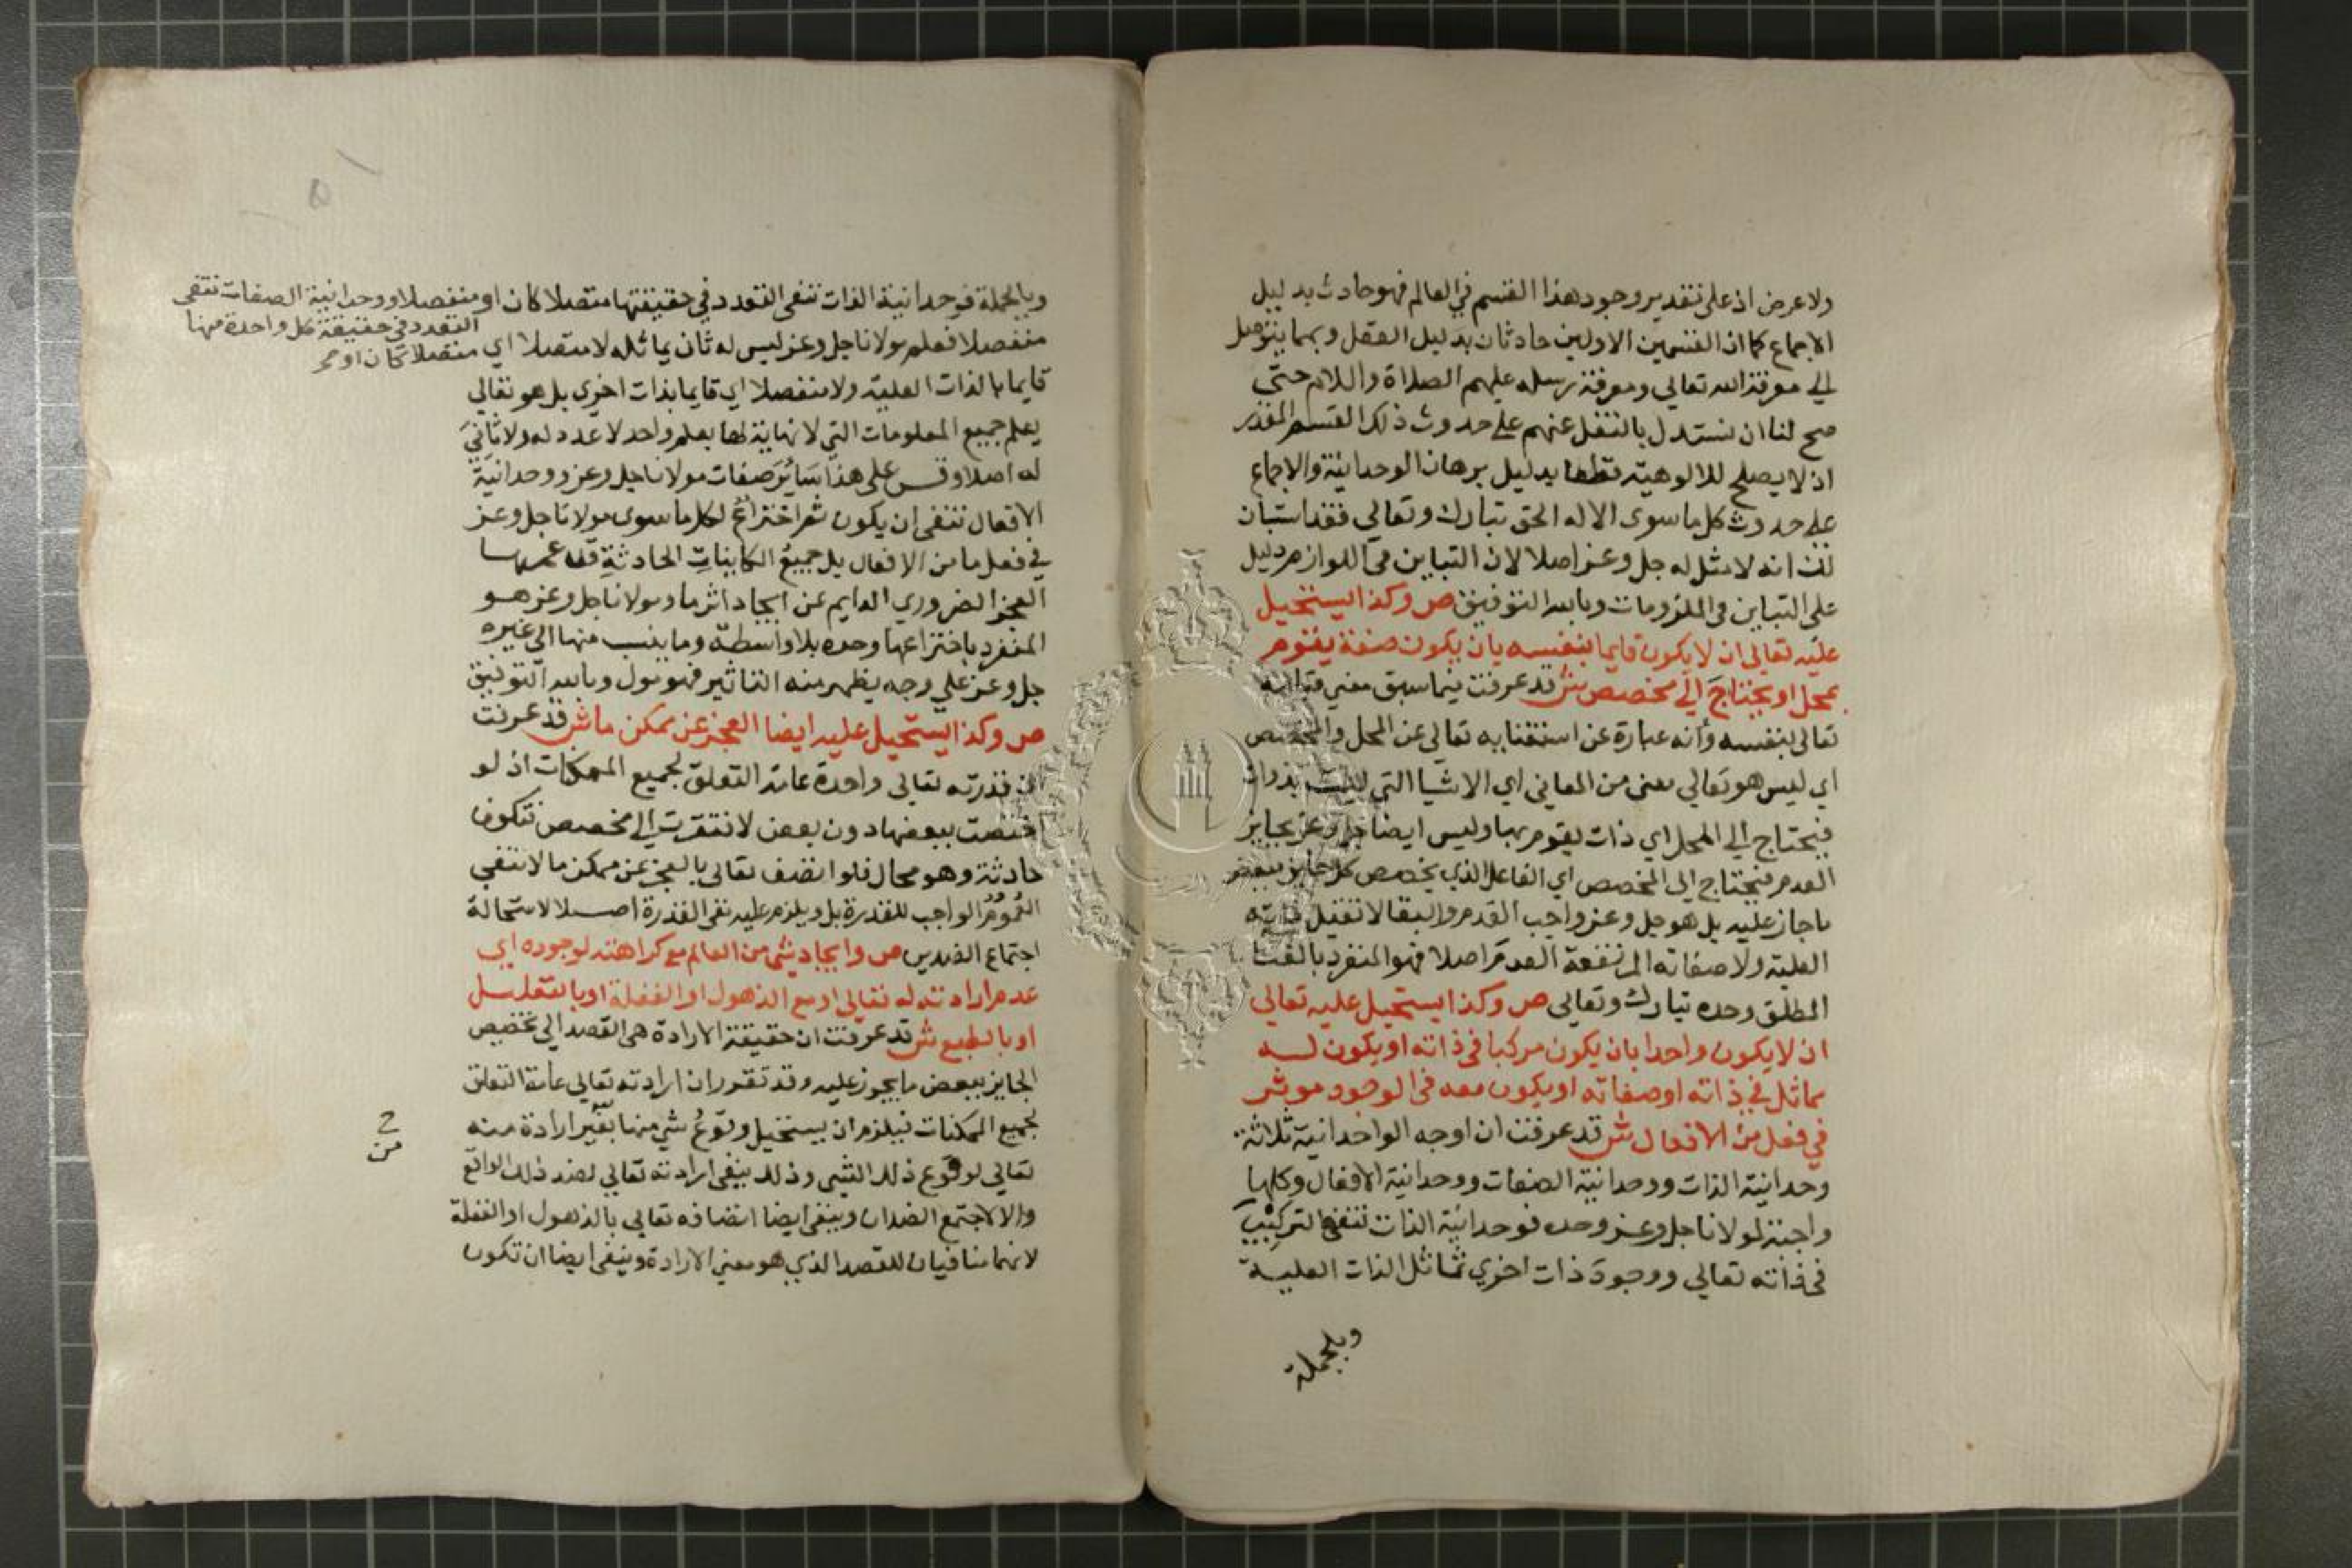 ولا عرض اذ على تقدير وجود هذا القسم في العالم فهو حادث بدليل
الاجماع كما ان القسمين الاولين حادثان بدليل العقل وبهما يتوصل
الي معرفة الله تعالي ومعرفة رسله عليهم الصلاة والسلام حتى
صح لنا ان نستدل بالنقل عنهم على حدوث ذلك القسم المقدر
اذ لا يصلح للالوهية قطعا بدليل برهان الوحدانية والاجماع
على حدوث كل ما سوى الاله الحق تبارك وتعالي فقد استبان
لك انه لا مثل له جل وعز اصلا لان التباين في اللوازم دليل
على التباين في الملزومات وبالله التوفيق ص وكذا يستحيل
عليه تعالى ان لا يكون قايما بنفسه بان يكون صفة يقوم
بمحل او يحتاج الي مخصص ش قد عرفت فيما سبق معني قيامه
تعالى بنفسه وأنه عبارة عن استغنايه تعالى عن المحل والمخصص
اي ليس هو تعالي معنى من المعاني اي الاشيا التي ليست بذوات
فيحتاج الي المحل اي ذات يقوم بها وليس ايضا جل وعز بجايز
العدم فيحتاج الى المخصص اي الفاعل الذي يخصص كل جايز ببعض
ما جاز عليه بل هو جل وعز واجب القدم والبقا لا تقبل ذاته
العلية ولا صفاته المرتفعة العدم اصلا فهو المنفرد بالغنا
المطلق وحده تبارك وتعالى ص وكذا يستحيل عليه تعالي
ان لا يكون واحدا بان يكون مركبا في ذاته او يكون لـه
مماثل في ذاته او صفاته او يكون معه في الوجود موثر
في فعل من الافعال ش قد عرفت ان اوجه الواحدانية ثلاثة
وحدانية الذات ووحدانية الصفات ووحدانية الافعال وكلها
واجبة لمولانا جل وعز وحده فوحدانية الذات تنفي التركيب
في ذاته تعالى ووجود ذات اخري تماثل الذات العلية
وبالجملة
وبالجملة فوحدانية الذات تنفى التعدد في حقيقتها متصلا كان او منفصلا ووحدانية الصفات تنفى
التعدد في حقيقة كل واحدة منها
متصلا كان او
منفصلا فعلم مولانا جل وعز ليس له ثان يماثله لا متصلا اي
قايما بالذات العلية ولا منفصلا اي قايما بذات اخري بل هو تعالي
يعلم جميع المعلومات التي لا نهاية لها بعلم واحد لا عدد له ولا ثاني
له اصلا وقس على هذا سَايُرَ صفات مولانا جل وعز ووحدانية
الافعال تنفى ان يكون ثم اختراع لكل ما سوى مولانا جل وعز
في فعل ما من الافعال بل جميع الكاينات الحادثة قد عمها
العجز الضروري الدايم عن ايجاد اثر ما ومولانا جل وعز هو
المنفرد باختراعها وحده بلا واسطة وما ينسب منها الى غيره
جل وعز علي وجه يظهر منه التاثير فهو مول وبالله التوفيق
ص وكذا يستحيل عليه ايضا العجز عن ممكن ما ش قد عرفت
ان قدرته تعالى واحدة عامة التعلق لجميع الممكنات اذ لو
اختصت ببعضها دون بعض لافتقرت الى مخصص فتكون
حادثة وهو محال فلو اتصف تعالى بالعجز عن ممكن ما لانتفي
العُمومُ الواجب للقدرة بل ويلزم عليه نفي القدرة اصلا لاستحالة
اجتماع الضدين ص وايجاد شي من العالم مع كراهته لوجوده اي
عدم ارادته له تعالى او مع الذهول او الغفلة او بالتعليل
او بالطبع ش قد عرفت ان حقيقة الارادة هي القصد الي تخصيص
الجايز ببعض ما يجوز عليه وقد تقرر ان ارادته تعالي عامة التعلق
لجميع الممكنات فيلزم ان يستحيل وقوعُ شي منها بغير ارادة منه
تعالي لوقوع ذلك الشي وذلك ينفى ارادته تعالي لضد ذلك الواقع
والا لاجتمع الضدان وينفى ايضا اتصافه تعالي بالذهول او الغفلة
لانهما منافيان للقصد الذي هو معني الارادة وينفى ايضا ان تكون